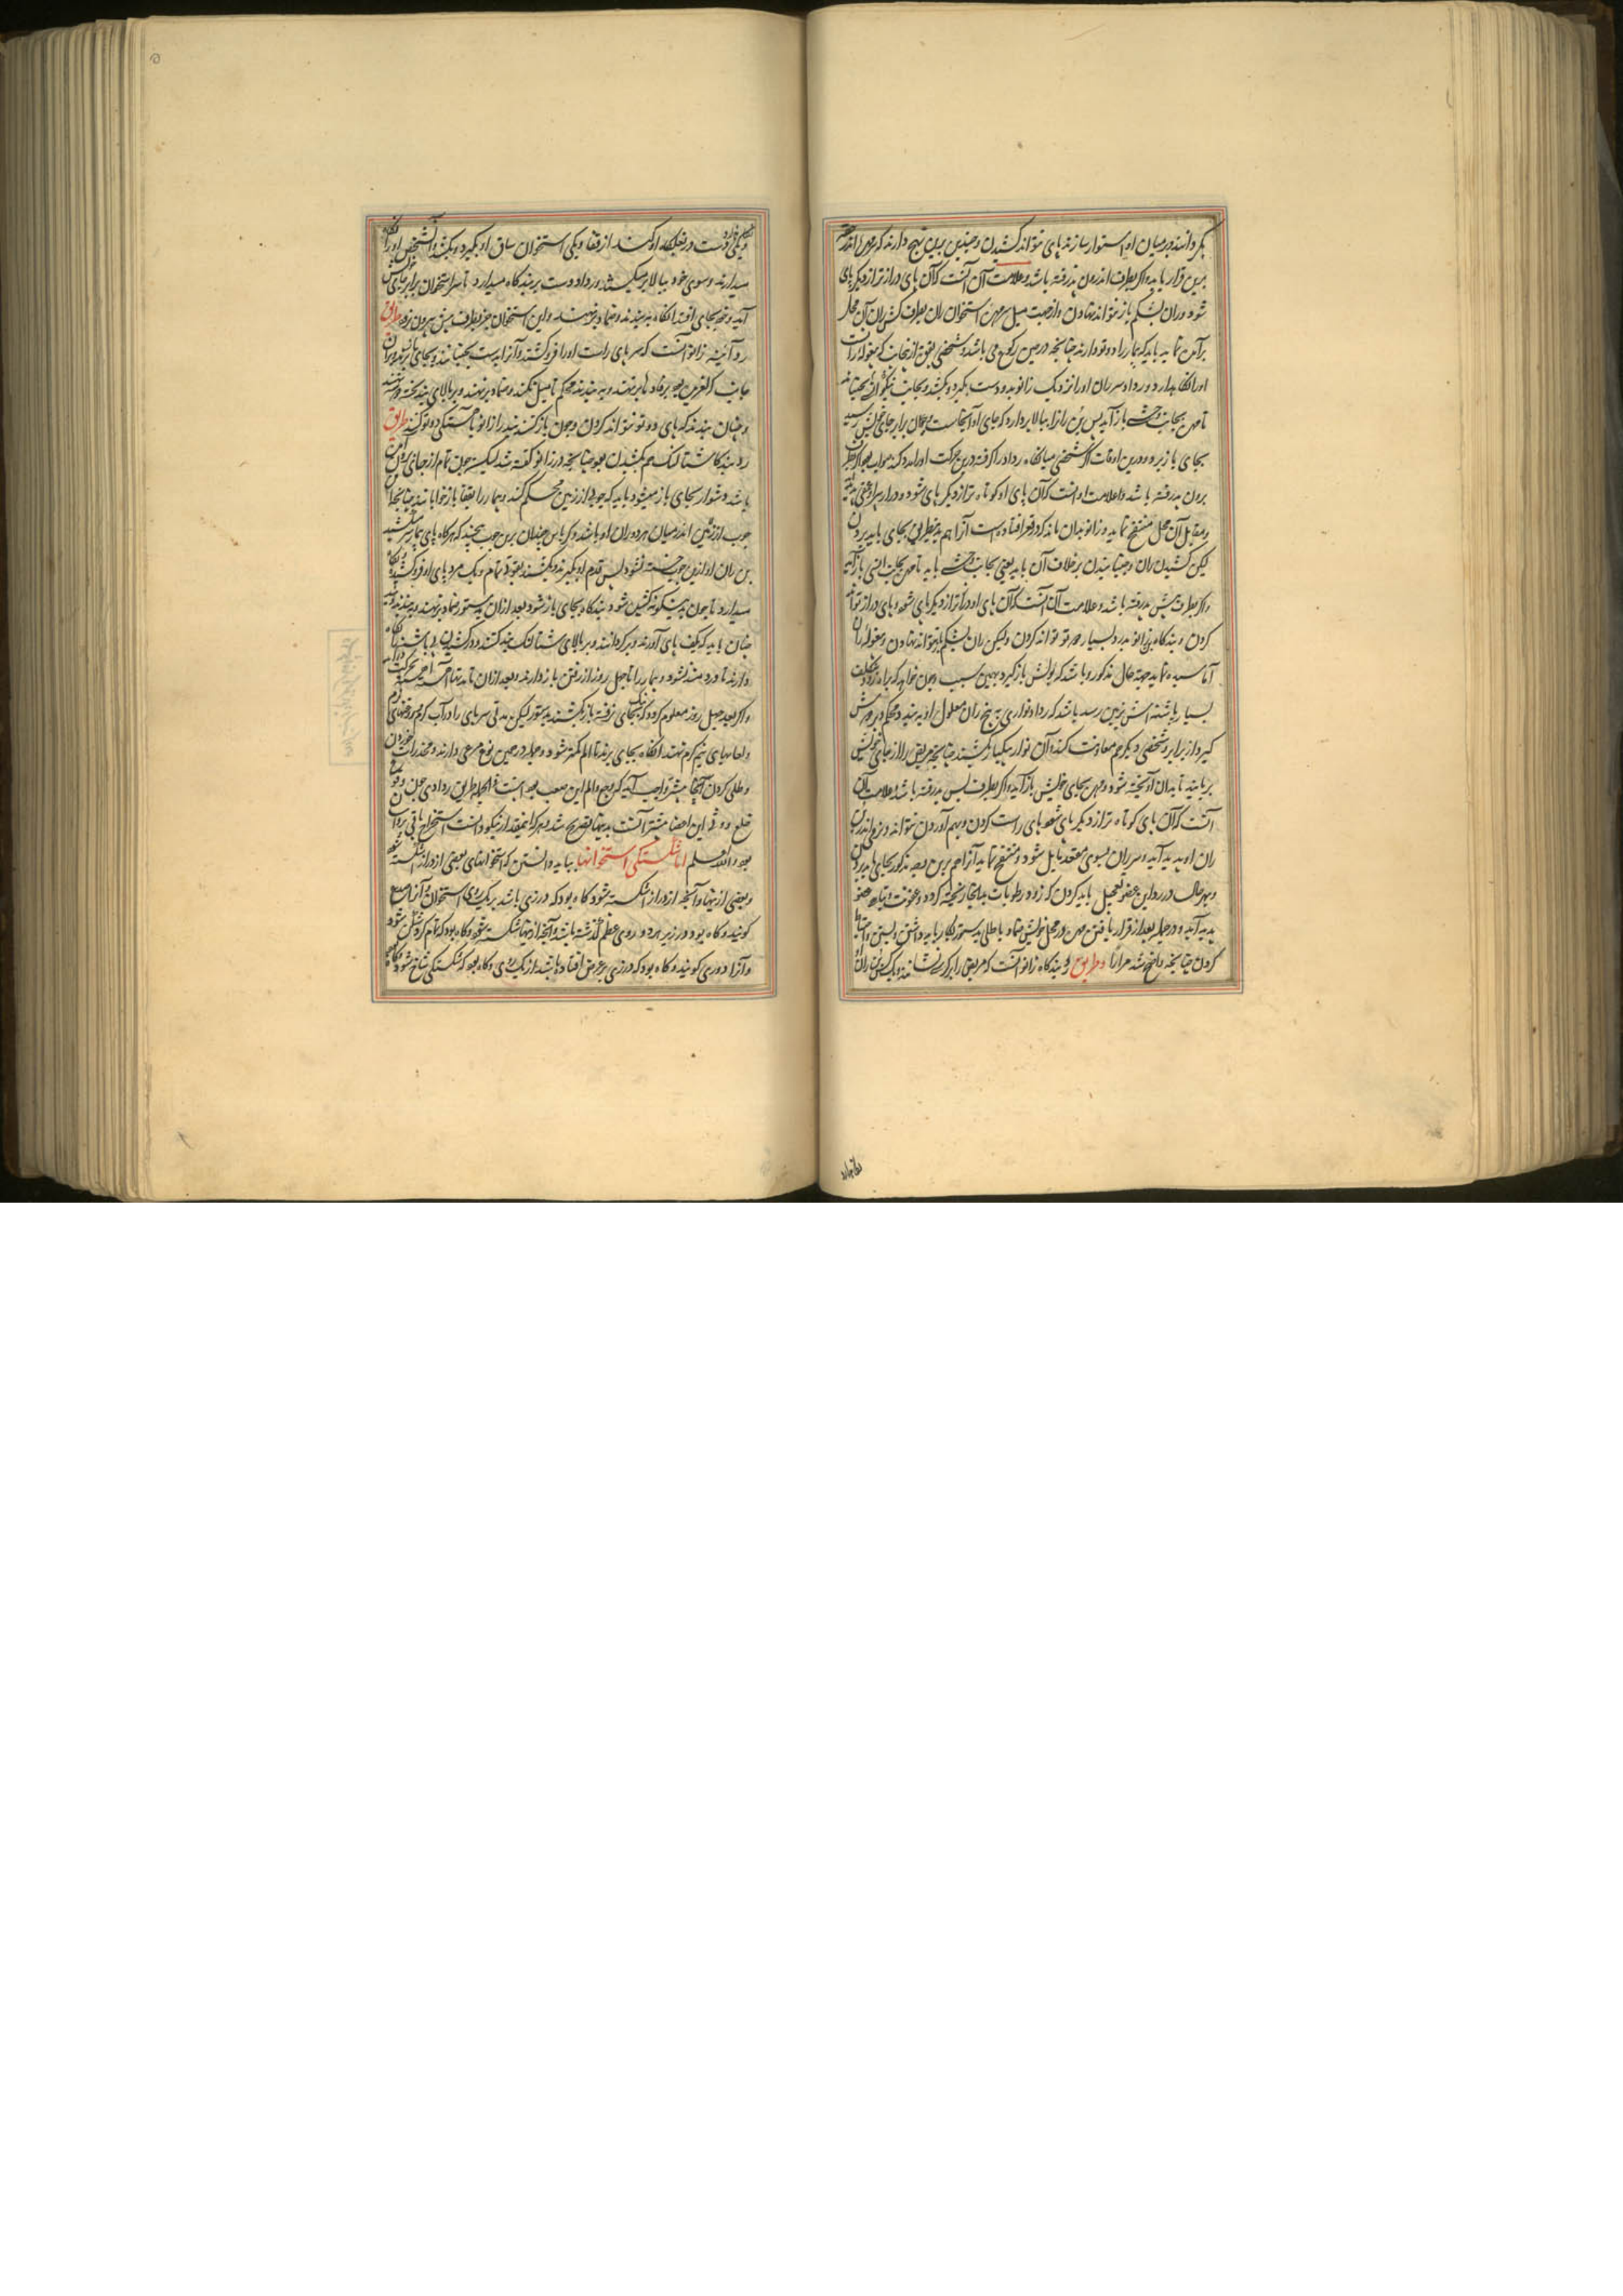 بگردانند و در میان او استوار سازند پای نتواند کشیدن و همچنین بدین نهج دارند که مهره اندر
برین قرار باید و اگر بطرف اندرون بدر رفته باشد و علامت آن آنست که آن پای درازتر از دیگر پای
شود و ران بشکم باز نتواند نهادن و از جهت میل سر مهره استخوان ران بطرف کش ران آن محل
برآمده نماید باید که بیمار را دوتو دارند چنانچه در حین رکوع می باشد و شخصی بقوت از
او را نگاه بدارد و رداد سر ران او را نزدیک زانو بدو دست بگیرد و بکشد و بجانب
تا مهره بجانب وحشی باز آید پس بن ران را ببالا بردارد که جای او آنجاست و چون برابر جای خویش رسید
بجای باز برد و درین اوقات اگر شخصی میانگاه رداد را گرفته درین حرکت او را مدد کند صواب بود و اگر بطرف
برون بدر رفته باشد و علامت او آنست که آن پای او کوتاه تر از دیگر پای شود و
و مقابل آن محل منتفخ نماید و زانو بدان ماند که در قعر افتاده است آنرا هم بدین طریق بجای باید بردن
لیکن کشیدن ران و جنبانیدن برخلاف آن باید یعنی بجانب وحشی باید تا مهره بجانب انسی باز آید
و اگر بطرف پیش بدر رفته باشد و علامت آن آنست که آن پای او درازتر از دیگر پای شود و پای دراز تواند
کردن و بندگاه زانو بدرد بسیار دوتو تواند کردن و لیکن ران بشکم باز نتواند نهادن و
آماسیده نماید جهت حال مذکور و باشد که بولش باز گیرد بهمین سبب و چون خواهد که براه رود
بسیار پاشنه اش بزمین رسد باشد که رداد نواری به بیخ ران معلول او به بندد محکم و
گیرد از برابر و شخصی دیگر هم معاونت کند و آن نوار بیکبار بکشند چنانچه مریض را از جای خویش
بربایند تا بدان آویخته شود و مهره بجای خویش باز آید و اگر بطرف پس بدر رفته باشد و علامت آن
آنست که آن پای کوتاه تر از دیگر پای شود و پای راست کردن و بهم آوردن نتواند و
ران او پدید آید و سر ران بسوی مقعد مایل شود و منتفخ نماید آنرا هم برین وجه مذکور بجای باید بردن
و بهر حال در رد این عضو تعجیل باید کردن که زود رطوبات بدانجا ریخته گردد و عفونت و تباهی عضو
پدید آید و در جمله بعد از قرار یافتن مهره در محل خویش ضماد یا طلی بدستور بکار باید داشتن و بستن و
کردن چنانچه واضح شد مرارا و طریق رد بندگاه زانو آنست که مریض را بر کرسی نشانند و یک کس بن ران
و یکی دست در بغلگاه او کند از قفا و یکی استخوان ساق او بگیرد و بکشد و آن شخص او را
میدارند و سوی خود ببالا بر میکشند و رداد دست بر بندگاه میدارد تا سر استخوان برابر جای خویش
آید و خود بجای افتد آنگاه به بندند و ضماد برنهند و این استخوان جز بطرف پیش بیرون نرود طریق
رد آئینه زانو آنست که سر پای راست او را فرو کشند و آنرا بدست بجنبانند و بجای باز
جانب که لغزیده بود رفاده ها برنهند و به بندند محکم تا میل نکند و ضماد برنهند و بر بالای بند تخته
و چنان ببندند که پای دوتو نتواند کردن و چون باز کنند بند را زانو باآهستگی دوتو کنند طریق
رد بندگاه شتالنگ هم کشیدن بود چنانچه در زانو گفته شد لیکن چون تمام از جای برآمده
باشد دشوار بجای باز میشود باید که چوبی از زمین محکم کنند و بیمار را بقفا باز خوابانند چنانچه
چوب از زمین اندر میان هر دو ران او باشد و کرباس چندان برین چوب بپیچند که هرگاه پای بیمار
بن ران او ازین چوب خسته نشود پس قدم او بگیرند و بکشند بقوت تمام و یک مرد پای او فرو کشیده نگاه
میدارد تا چون بدینگونه کشیده شود بندگاه بجای باز شود بعد از آن بدستور ضماد برنهند و به بندند
چنان باید که بکف پای آورند و برگردانند و بر بالای شتالنگ بند کنند و در کشیدن پی پاشنه نگاه
دارند تا دردمند نشود و بیمار را تا چهل روز از رفتن باز دارند و بعد از آن تا مدتها آهسته آهسته
و اگر بعد چهل روز معلوم گردد که نیک بجای نرفته باز بکشند بدستور لیکن مدتی سر پای را در آب گرم و روغنهای گرم
و لعابهای نیم گرم نهند آنگاه بجای برند تا الم کمتر شود و بیمار در حین نوع مرعی دارند و مخدرات خوردن
و طلی کردن آنجا بیشتر واجب آید که وجع و الم این صعب بود اینست فی الجمله طریق ردادی چون وقوع
خلع و وثی این اعضا بیشتر است بدینها تصریح شد و هر که این قدر نیکو دانست استخراج باقی بر او آسان
بود و الله اعلم اما شکستگی استخوانها بباید دانستن که استخوانهای بعضی از دراز شکسته شود
و بعضی از پهنا و آنچه از دراز شکسته شود گاه بود که درزی باشد بر یک روی استخوان و آنرا صدع
گویند و گاه بود درز بر هر دو روی عظم گذشته باشد و آنچه از پهنا شکسته شود گاه بود که تمام گرد شکسته شود
و آنرا دوری گویند و گاه بود که درزی بر عرض افتاده باشد از یک روی و گاه بود که شکستگی شاخ شاخ شود